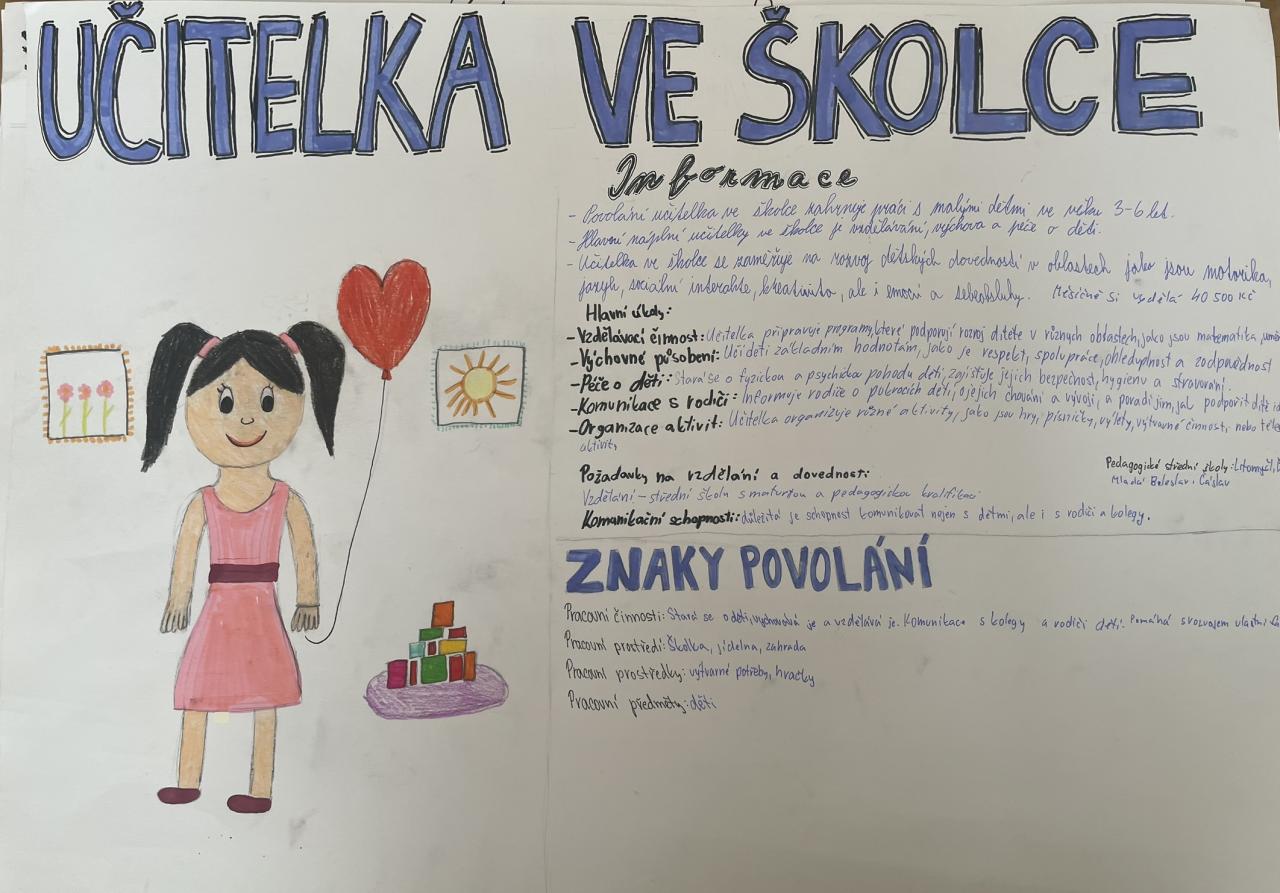 UČITELKA VE ŠKOLCE
Informace
- Povolání učitelka ve školce zahrnuje práci s malými dětmi ve věku 3-6 let.
- Hlavní náplní učitelky ve školce je vzdělávání, výchova a péče o děti.
- Učitelka ve školce se zaměřuje na rozvoj dětských dovedností v oblastech jako jsou motorika,
jazyk, sociální interakte, kreativita, ale i emocí a sebeobsluhy. Měsíčně si vydělá 40 500 Kč
Hlavní úkoly:
-Vzdělávací činnost: Učitelka připravuje programy, které podporují rozvoj dítěte v různých oblastech, jako jsou matematika,
-Výchovné působení: Učí děti základním hodnotám, jako je respekt, spolupráce, ohleduplnost a zodpovědnost
-Péče o děti: Stará se o fyzickou a psychickou pohodu dětí, zajišťuje jejich bezpečnost, hygienu a stravování.
-Komunikace s rodiči: Informuje rodiče o pokrocích dětí, o jejich chování a vývoji, a poradí jim, jak podpořit dítě
-Organizace aktivit: Učitelka organizuje různé aktivity, jako jsou hry, písničky, výlety, výtvarné činnosti nebo
aktivity
Požadavky na vzdělání a dovednosti
Pedagogické střední školy: Litomyšl,
Mladá Boleslav, Čáslav
Vzdělání - střední škola s maturitou a pedagogickou kvalifikací
Komunikační schopnosti: důležitá je schopnost komunikovat nejen s dětmi, ale i s rodiči a kolegy.
ZNAKY POVOLÁNÍ
Pracovní činnosti: Stará se o děti, vychovává je a vzdělává je. Komunikace s kolegy a rodiči dětí. Pomáhá s rozvojem vlastní
Pracovní prostředí: Školka, jídelna, zahrada
Pracovní prostředky: výtvarné potřeby, hračky
Pracovní předměty: děti